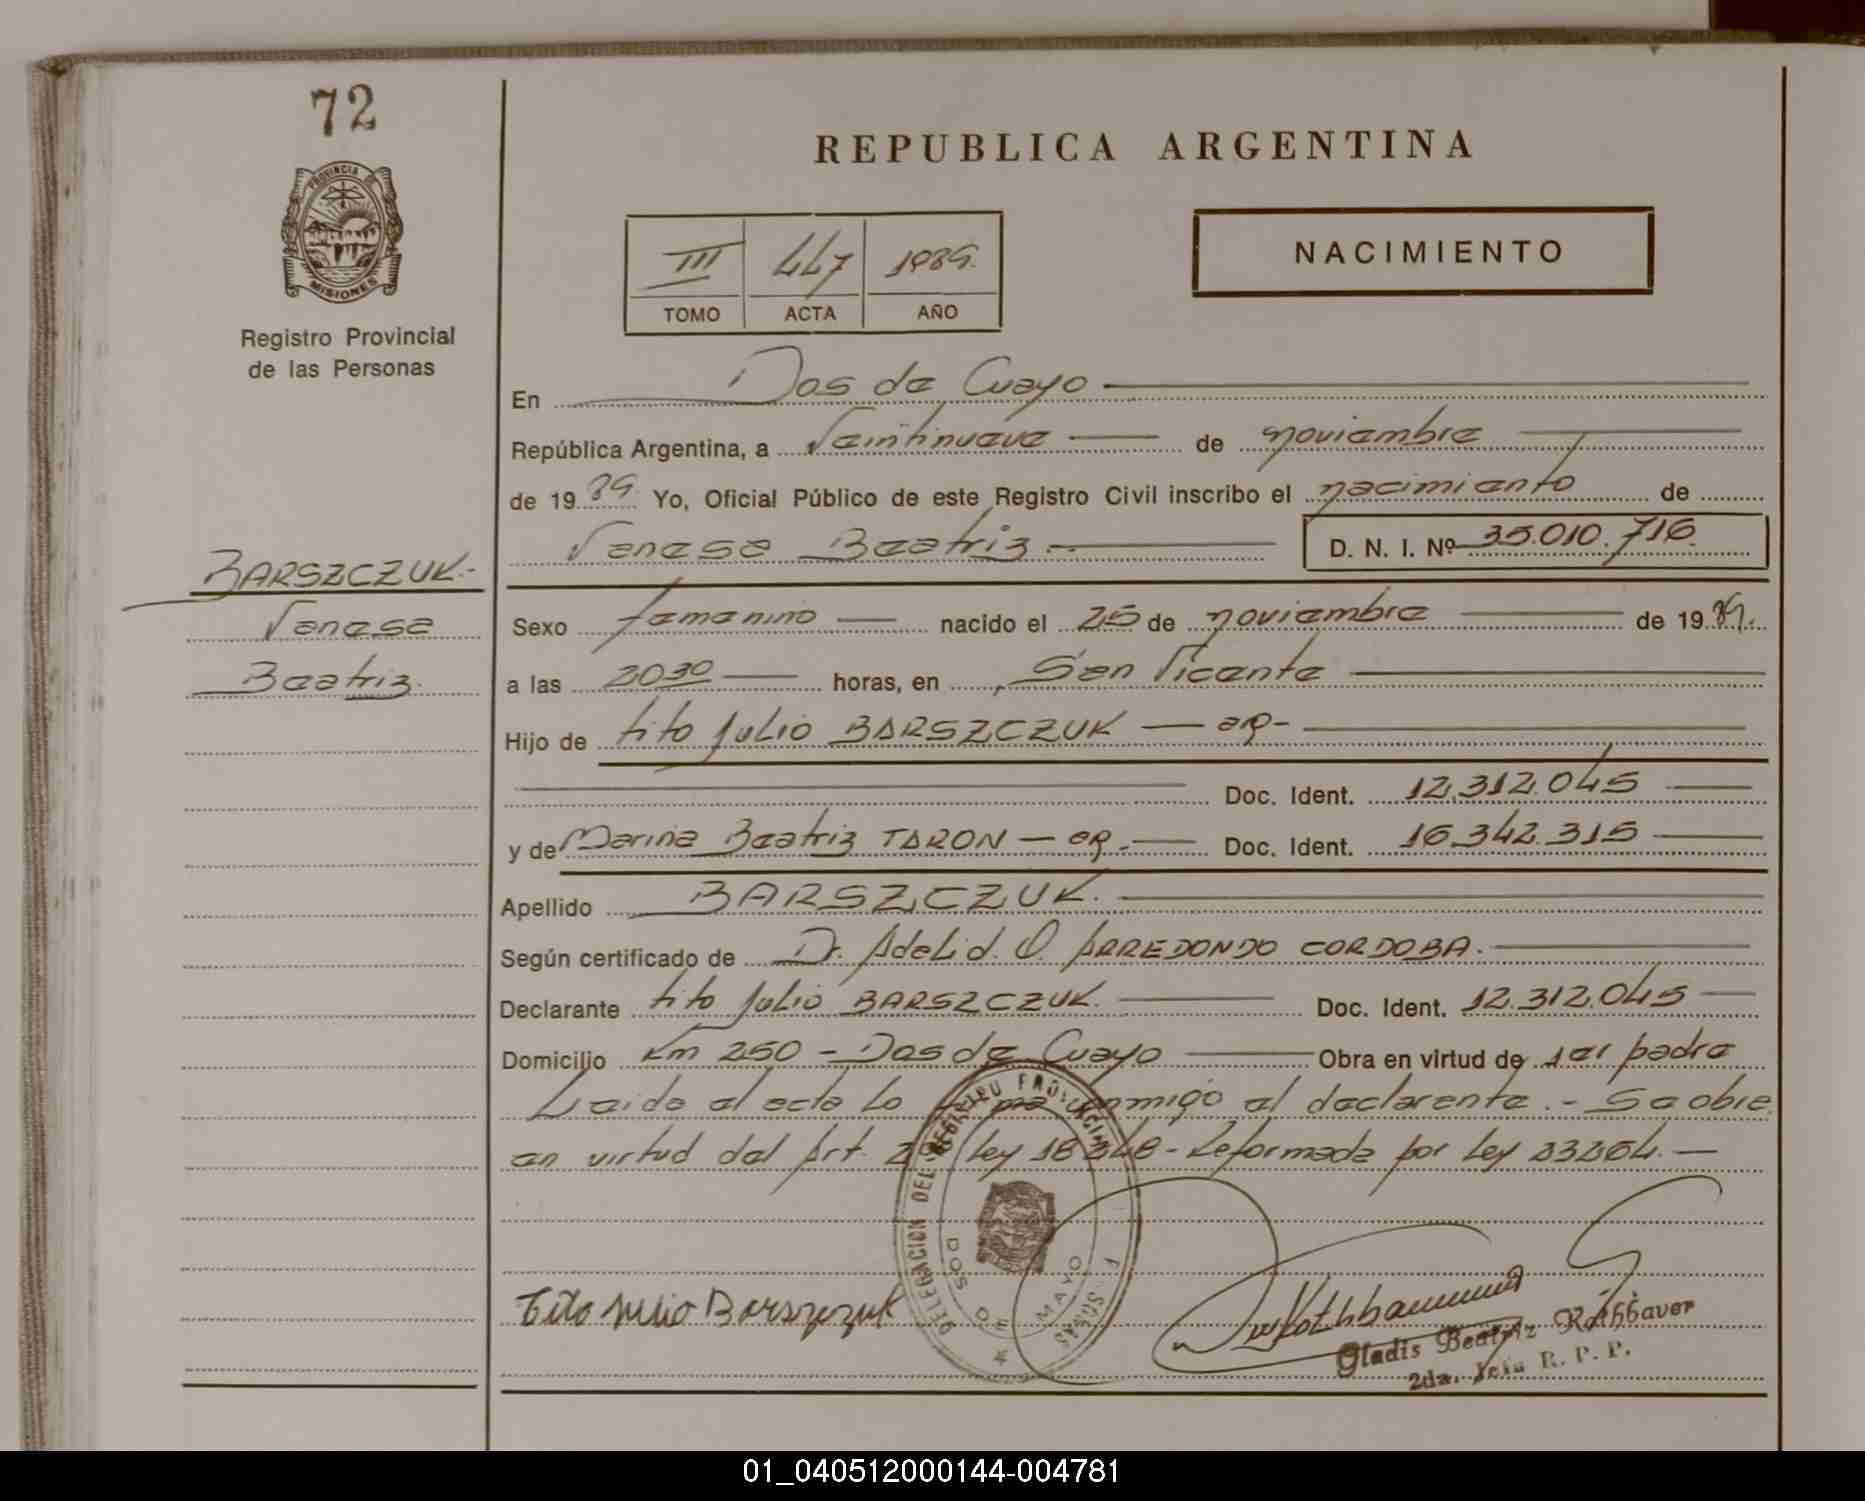 72
PROVINCIA DE
MISIONES
Registro Provincial
de las Personas
REPUBLICA ARGENTINA
III 447 1989.
TOMO ACTA AÑO
NACIMIENTO
En Dos de Mayo
República Argentina, a Veintinueve de noviembre
de 1989. Yo, Oficial Público de este Registro Civil inscribo el nacimiento de
Vanesa Beatriz.- D. N. I. Nº 35.010.716.
BARSZCZUK.-
Vanesa
Beatriz.
Sexo femenino nacido el 25 de noviembre de 1989.
a las 20 30 horas, en San Vicente
Hijo de Tito Julio BARSZCZUK - ar-
Doc. Ident. 12.312.045
y de Marina Beatriz TARON - ar.- Doc. Ident. 16.342.315
Apellido BARSZCZUK.
Según certificado de Dr. Adelid. O. ARREDONDO CORDOBA.
Declarante Tito Julio BARSZCZUK. Doc. Ident. 12.312.045
Domicilio Km 250 - Dos de Mayo Obra en virtud de ser padre
Leida el acta lo conmigo el declarante.- Sa obre
en virtud del Art. 2 Ley 18248 - Reformada por Ley 23264.-
DELEGACION DEL REGISTRO PROVINCIAL
DOS DE MAYO
Tito Julio Barszczuk
Gladis Beatriz Rothbaver
2da. Jefa R. P. P.
01_040512000144-004781